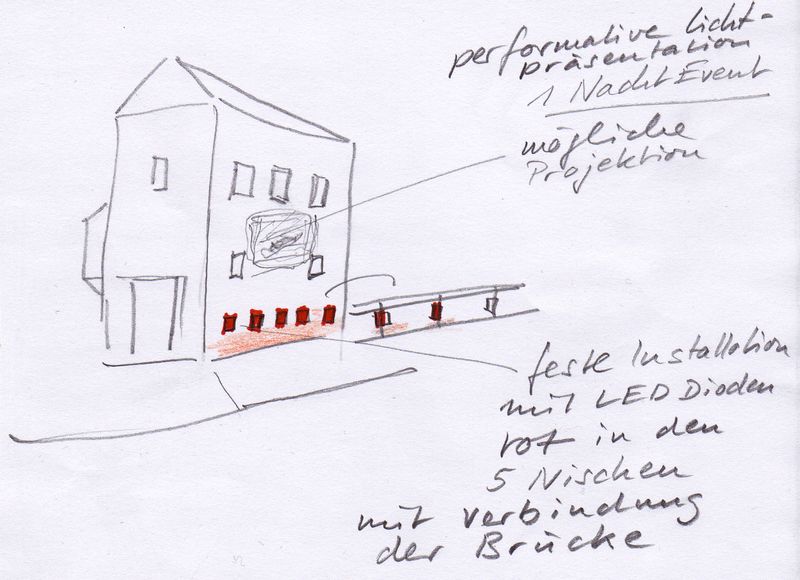 performative Licht-
präsentation
1 Nacht Event
mögliche
Projektion
feste Installation
mit LED Dioden
rot in den
5 Nischen
mit verbindung
der Brücke